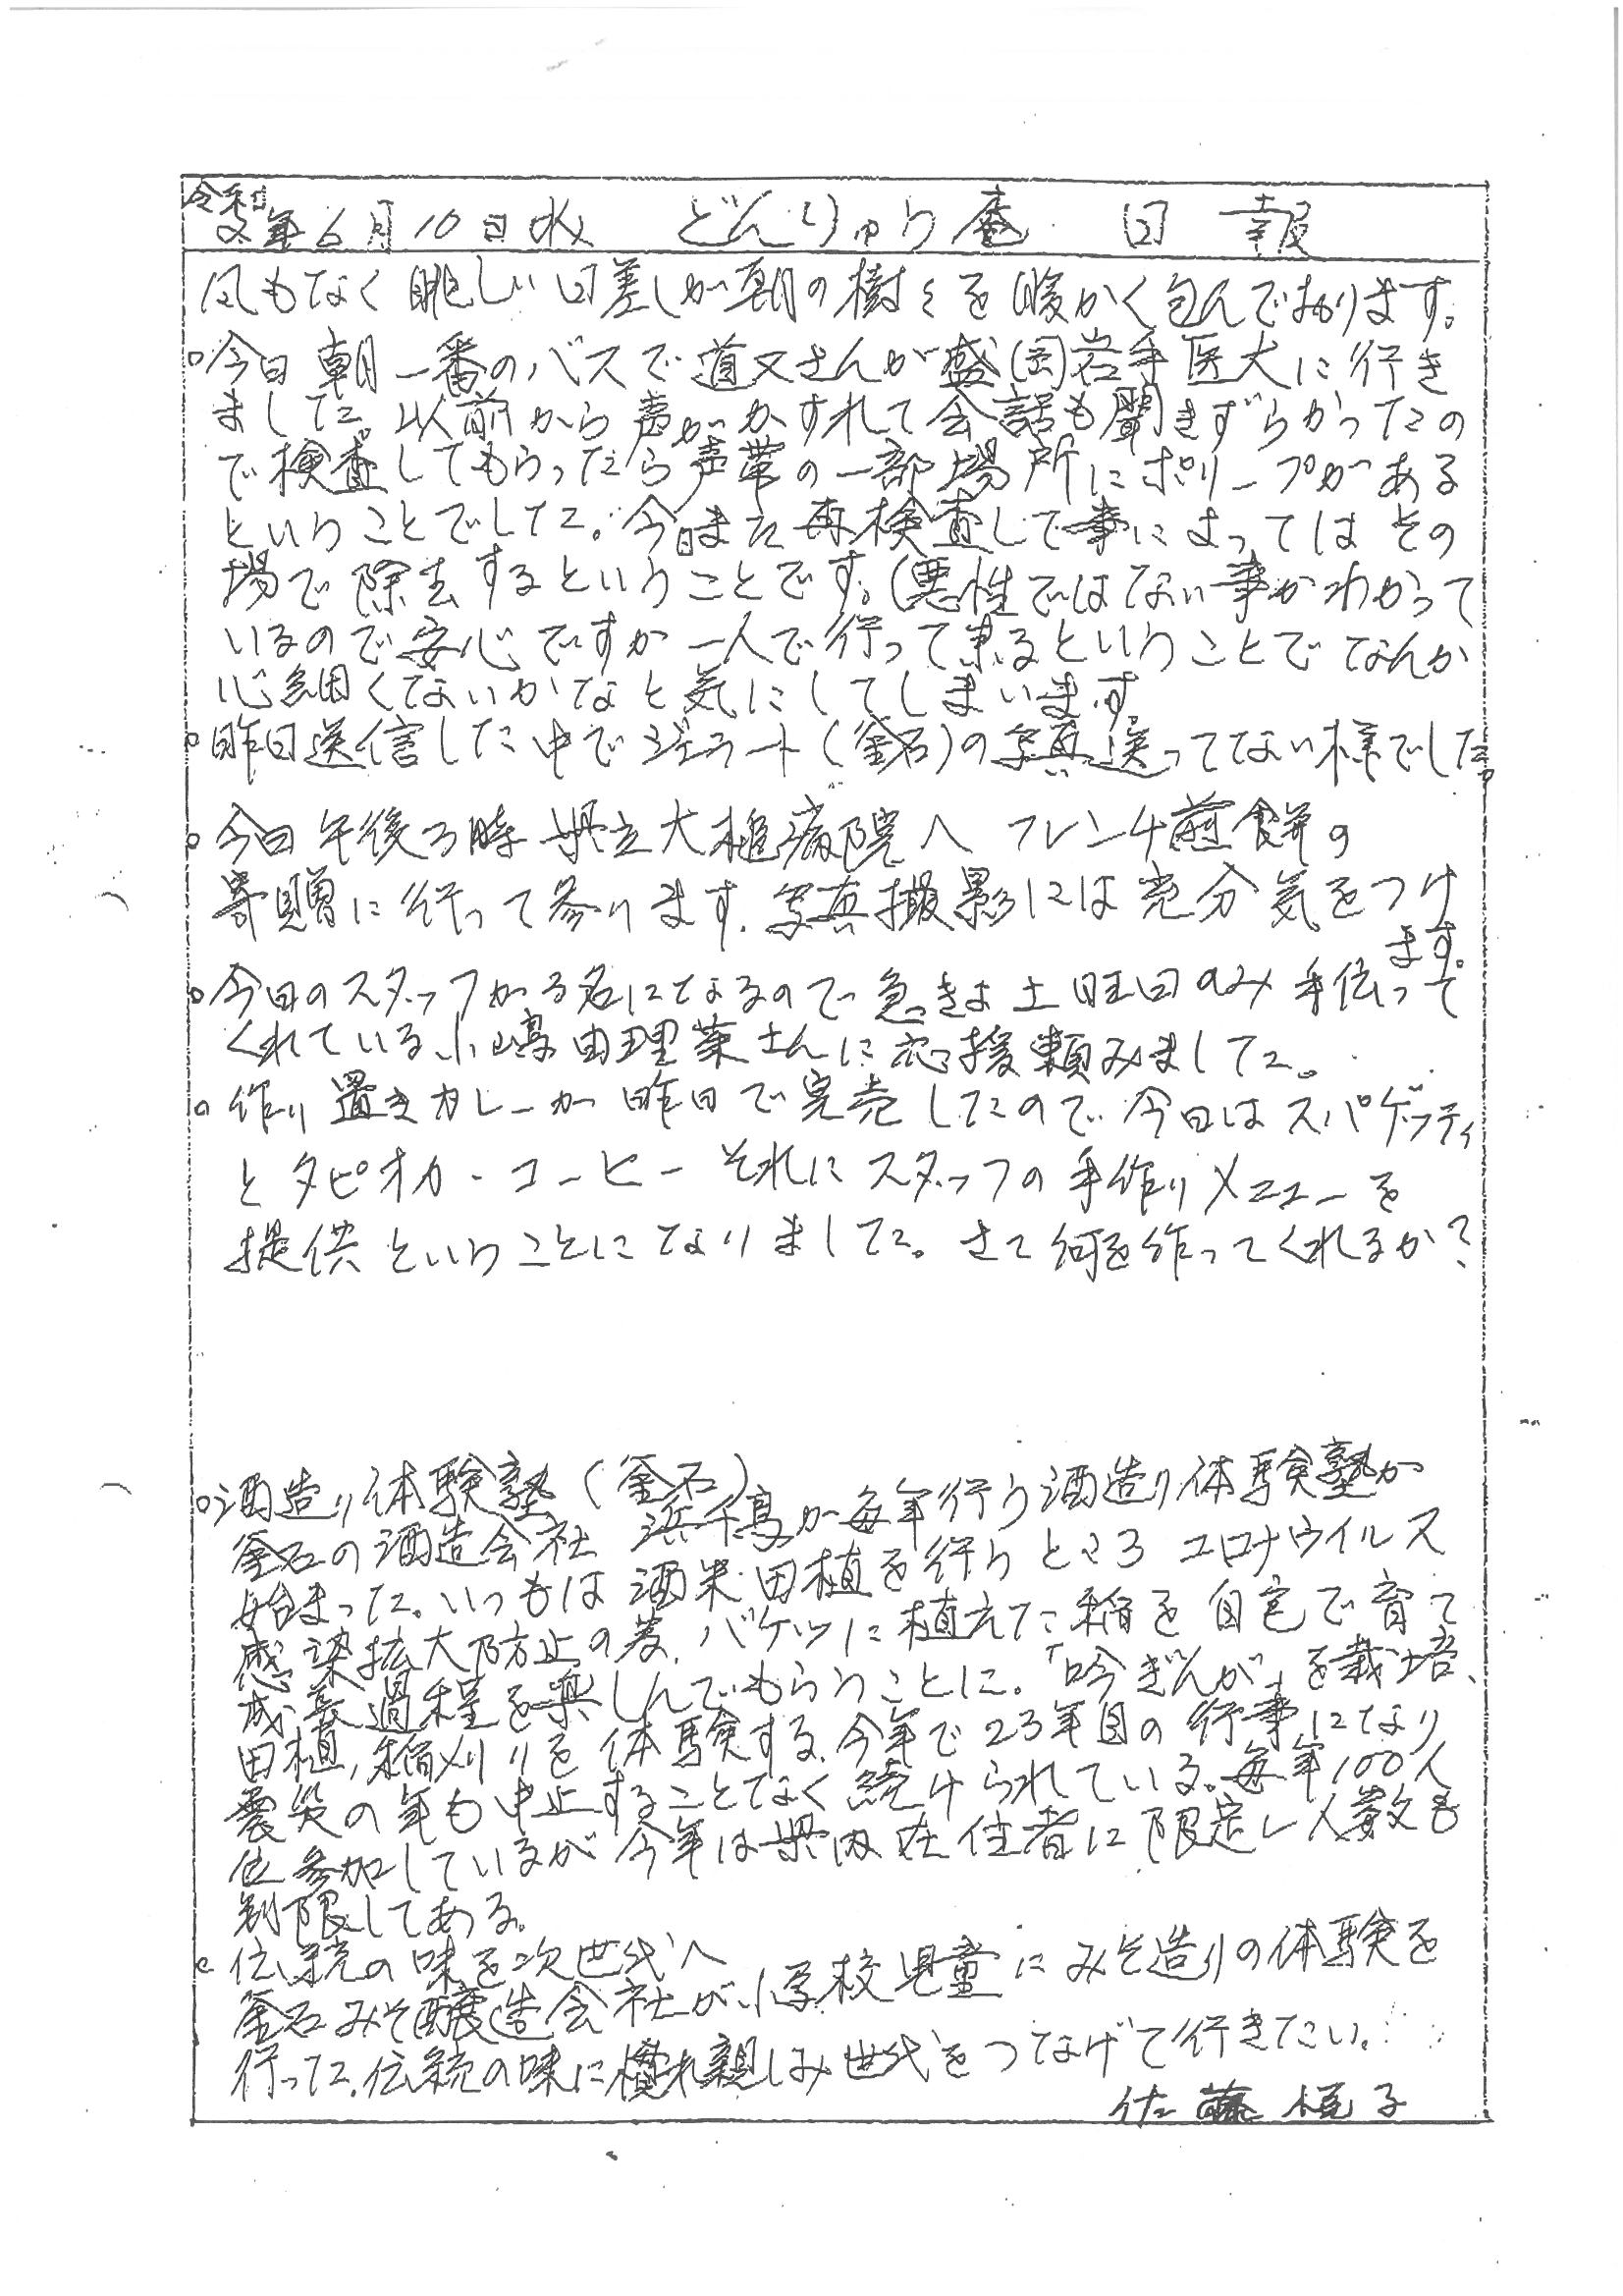 令和2年6月10日水 どんりゅう庵 日報
風もなく眩しい日差しが朝の樹々を暖かく包んでおります。
○今日朝一番のバスで道又さんが盛岡岩手医大に行き
ました。以前から声がかすれて会話も聞きずらかったの
で検査してもらったら声帯の一部場所にポリープがある
ということでした。今日また再検査して事によってはその
場で除去するということです。(悪性ではない事がわかって
いるので安心ですが一人で行って来るということでなんか
心細くないかなと気にしてしまいます。
○昨日送信した中でジェラート(釜石)の写真送ってない様でした。
○今日午後3時県立大槌病院へフレンチ煎餅の
寄贈に行って参ります。写真撮影には充分気をつけ
ます。
○今日のスタッフが3名になるので急きょ土日曜のみ手伝って
くれている小嶋由理菜さんに応援頼みました。
○作り置きカレーが昨日で完売したので今日はスパゲッティ
とタピオカ・コーヒーそれにスタッフの手作りメニューを
提供ということになりました。さて何を作ってくれるか?
○酒造り体験塾(釜石)
釜石の酒造会社 浜千鳥が毎年行う酒造り体験塾が
始まった。いつもは酒米田植を行うところコロナウイルス
感染拡大防止の為、バケツに植えた稲を自宅で育て
成長過程を楽しんでもらうことに。「吟ぎんが」を栽培、
田植,稲刈りを体験する。今年で23年目の行事になり
震災の年も中止することなく続けられている。毎年100人
位参加しているが今年は県内在住者に限定し人数も
制限してある。
○伝統の味を次世代へ
釜石みそ醸造会社が小学校児童にみそ造りの体験を
行った。伝統の味に慣れ親しみ世代をつなげて行きたい。
佐藤恒子